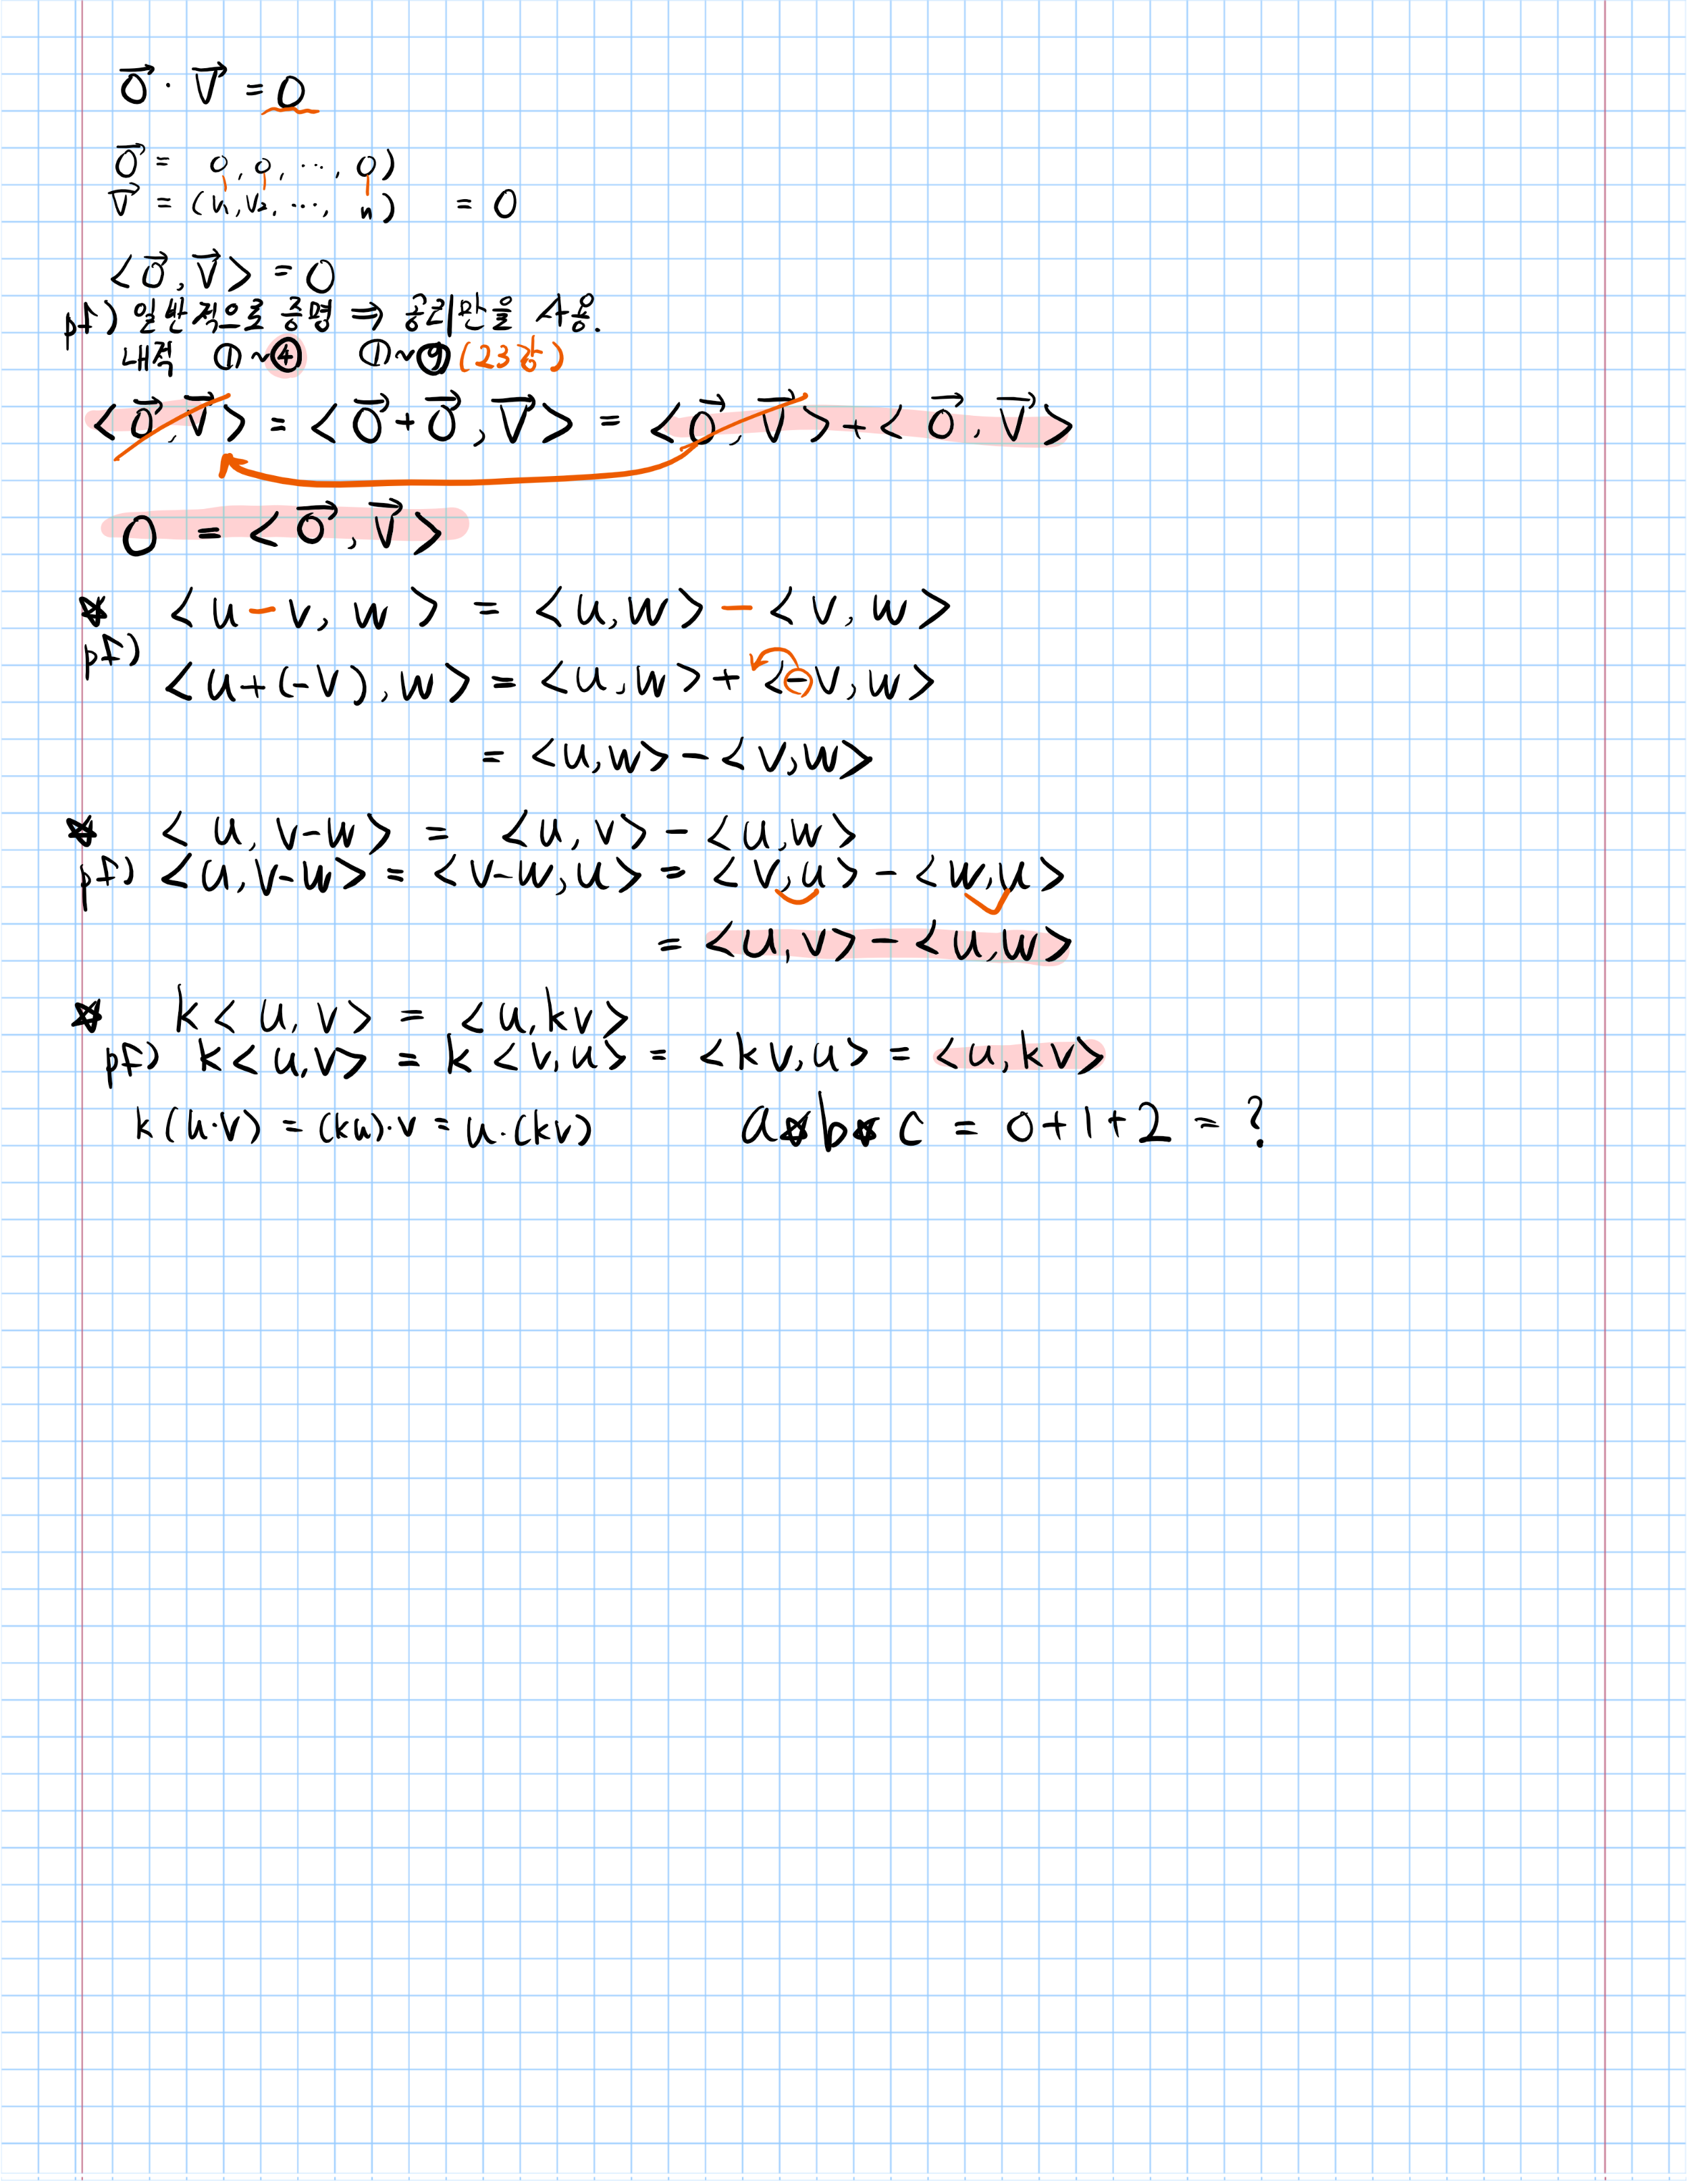 0⃗ · V⃗ = 0
0⃗ = 0, 0, ⋯, 0)
V⃗ = (v₁, v₂, ⋯, n) = 0
<0⃗, V⃗> = 0
pf) 일반적으로 증명 ⇒ 공리만을 사용.
내적 ①~④ ①~⑨ (23강)
<0⃗, V⃗> = <0⃗+0⃗, V⃗> = <0⃗, V⃗> + <0⃗, V⃗>
0 = <0⃗, V⃗>
☆ <u-v, w> = <u,w> - <v, w>
pf)
<u+(-v), w> = <u,w> + <-v,w>
= <u,w> - <v,w>
☆ <u, v-w> = <u, v> - <u,w>
pf) <u,v-w> = <v-w,u> = <v,u> - <w,u>
= <u,v> - <u,w>
☆ k<u, v> = <u,kv>
pf) k<u,v> = k<v,u> = <kv,u> = <u,kv>
k(u·v) = (ku)·v = u·(kv) a☆b☆c = 0+1+2 = ?